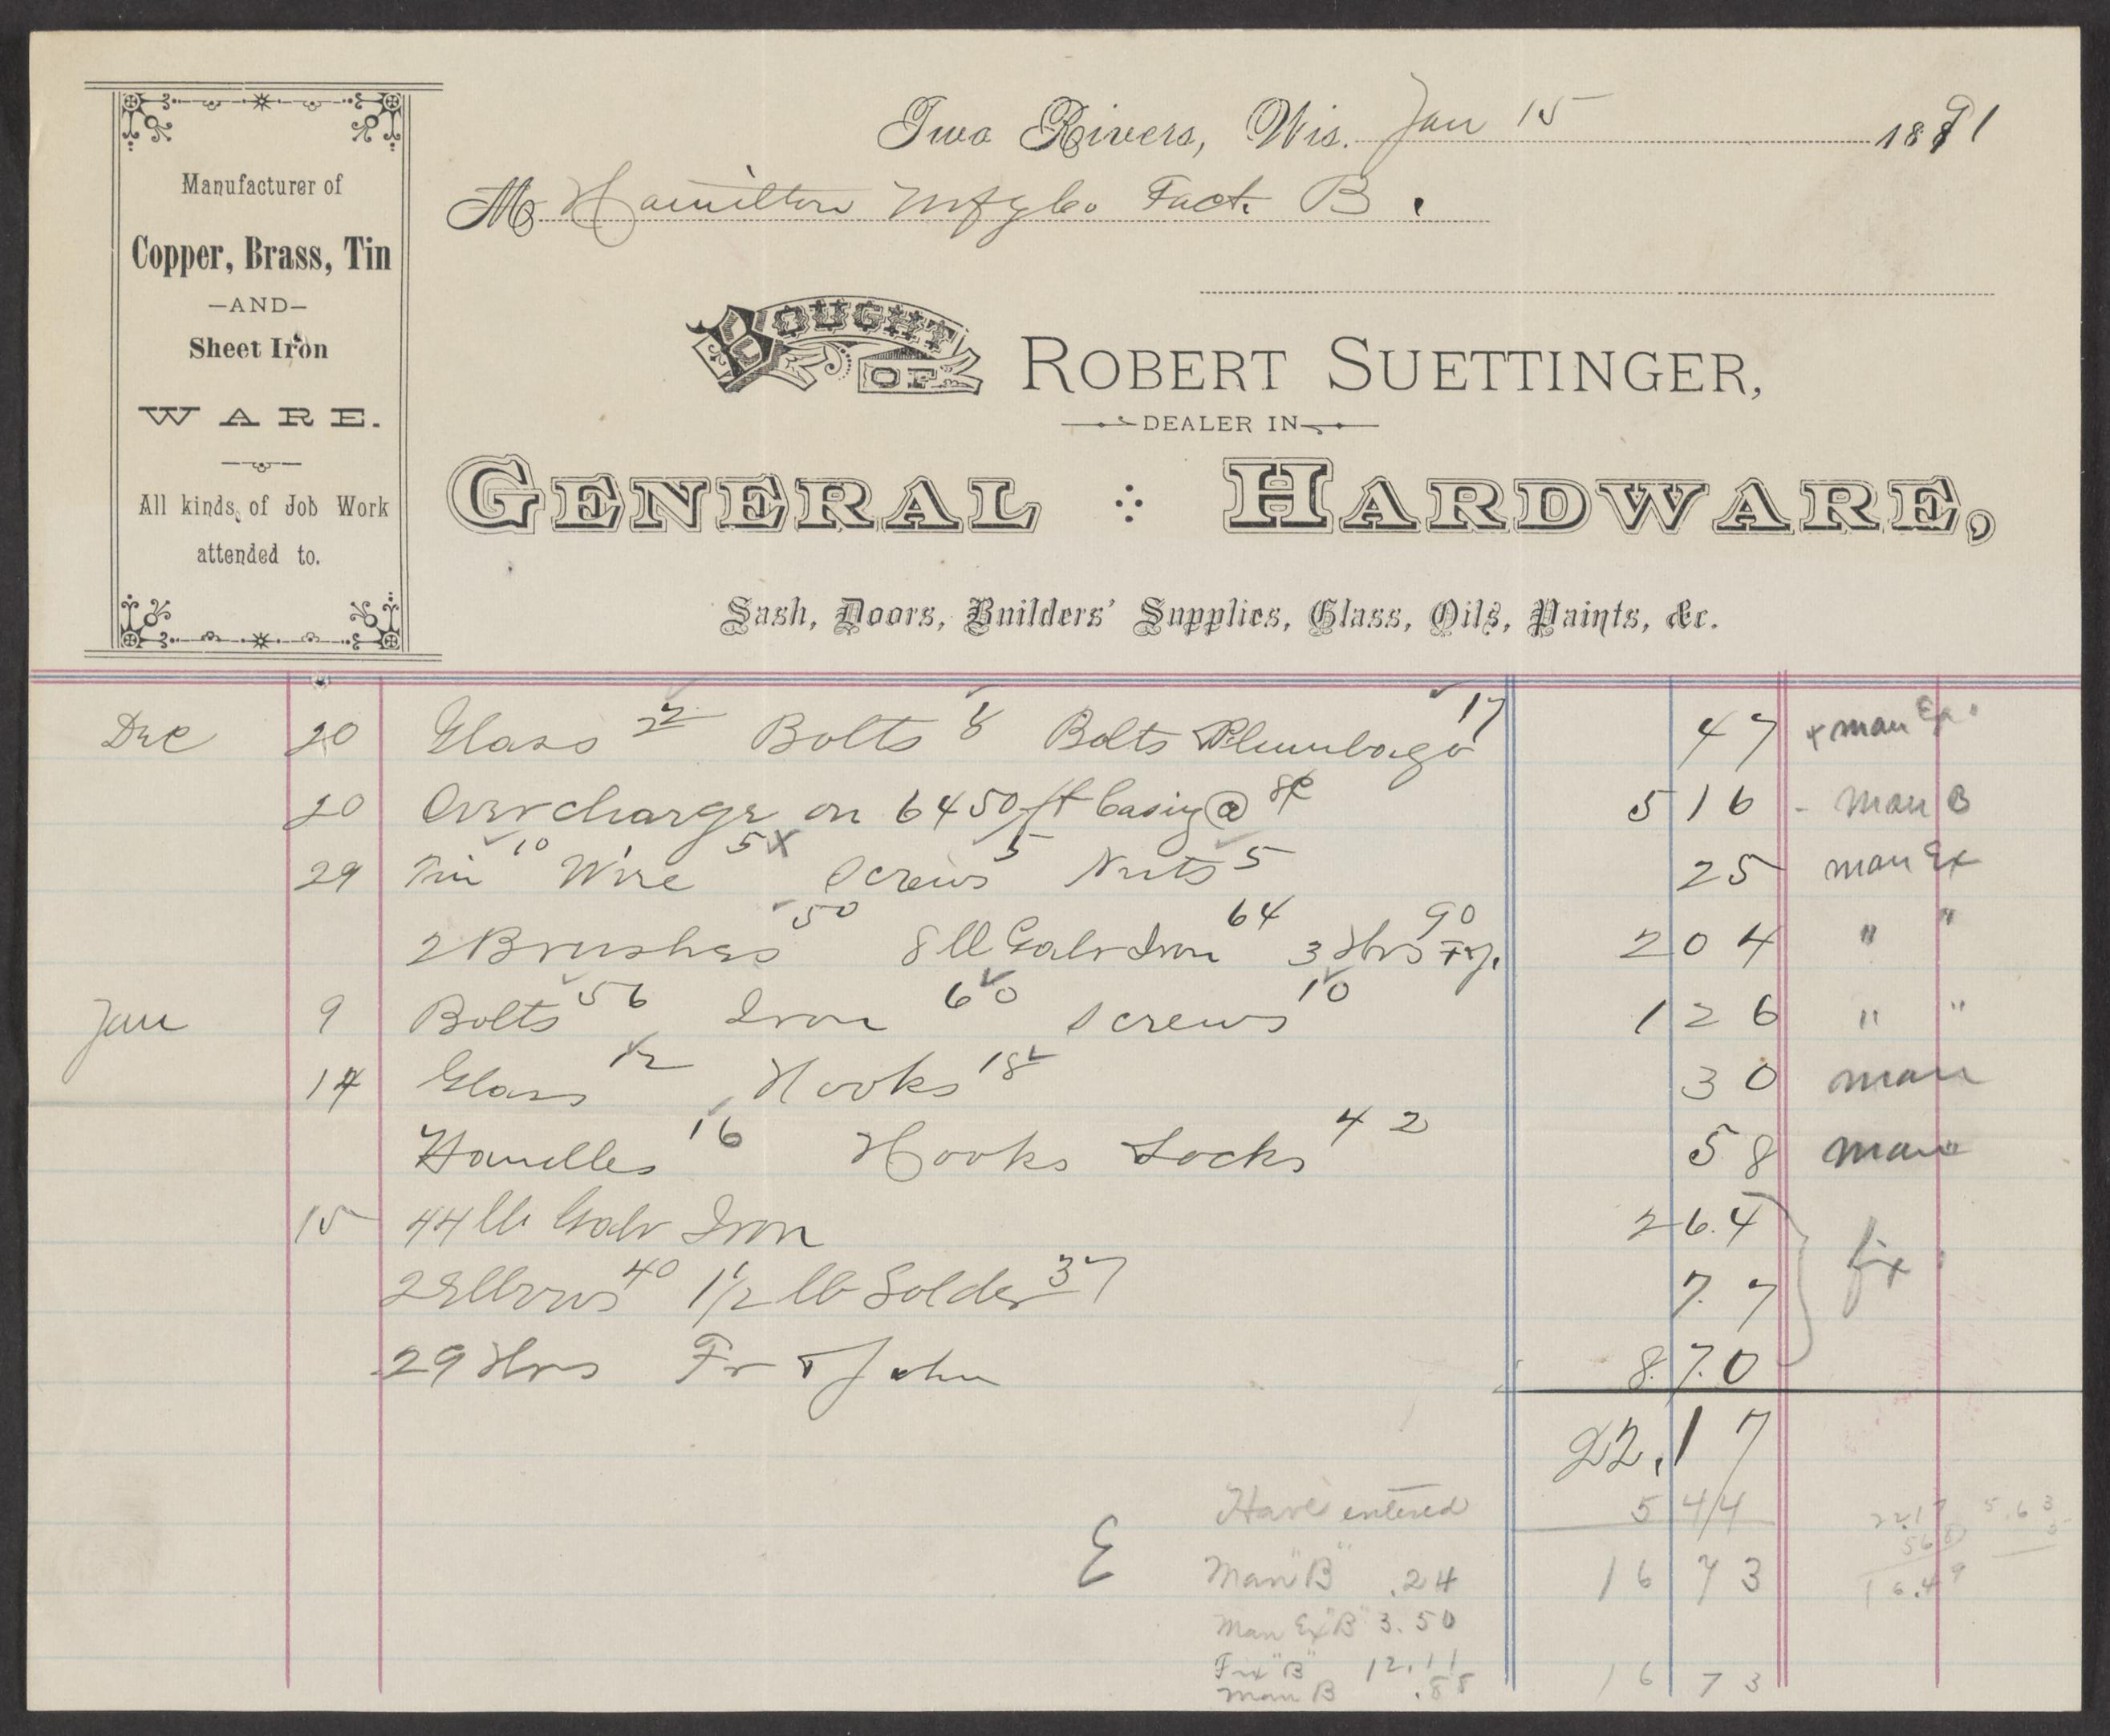 Manufacturer of
Copper, Brass, Tin
—AND—
Sheet Iron
WARE.
All kinds of Job Work
attended to.
Two Rivers, Wis. Jan 15 1891
M Hamilton Mfg Co Fact. B.
BOUGHT OF ROBERT SUETTINGER,
DEALER IN
GENERAL HARDWARE,
Sash, Doors, Builders' Supplies, Glass, Oils, Paints, &c.
Dec 20 Glass 22 Bolts 8 Bolts Plumbago 17 47 + man Ex.
20 Overcharge on 6450 ft Casing @ 8c 5 16 - Man B
29 Tin 10 Wire 5 x Screws 5 Nuts 5 25 man Ex
2 Brushes 50 8 lb Galv Iron 64 3 Hrs 90 2 04 " "
Jan 9 Bolts 56 Iron 60 Screws 10 1 26 " "
14 Glass 12 Hooks 18 30 man
Handles 16 Hooks Locks 42 58 man
15 44 lb Galv Iron 2 64
2 Ellbows 40 1 1/2 lb Solder 37 77 fix
29 Hrs Fr & John 8.70
22.17
Have entered 5 44
E Man "B" .24 16 73
Man Ex "B" 3.50
Fix "B" 12.11
man B .88 16 73
22.17
5.68
16.49
5.63